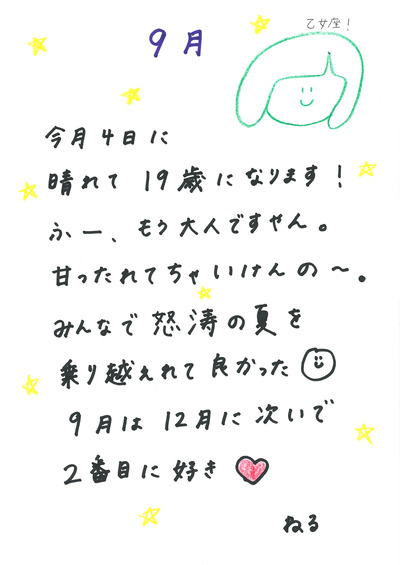 乙女座！
9月
今月4日に
晴れて19歳になります！
ふー、もう大人ですやん。
甘ったれてちゃいけんの〜。
みんなで怒涛の夏を
乗り越えれて良かった
9月は12月に次いで
2番目に好き
ねる